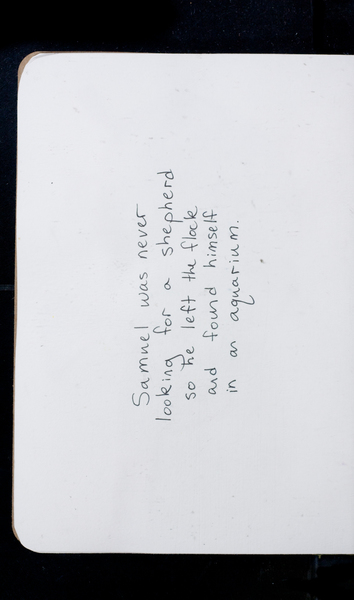 Samuel was never
looking for a shepherd
so he left the flock
and found himself
in an aquarium.